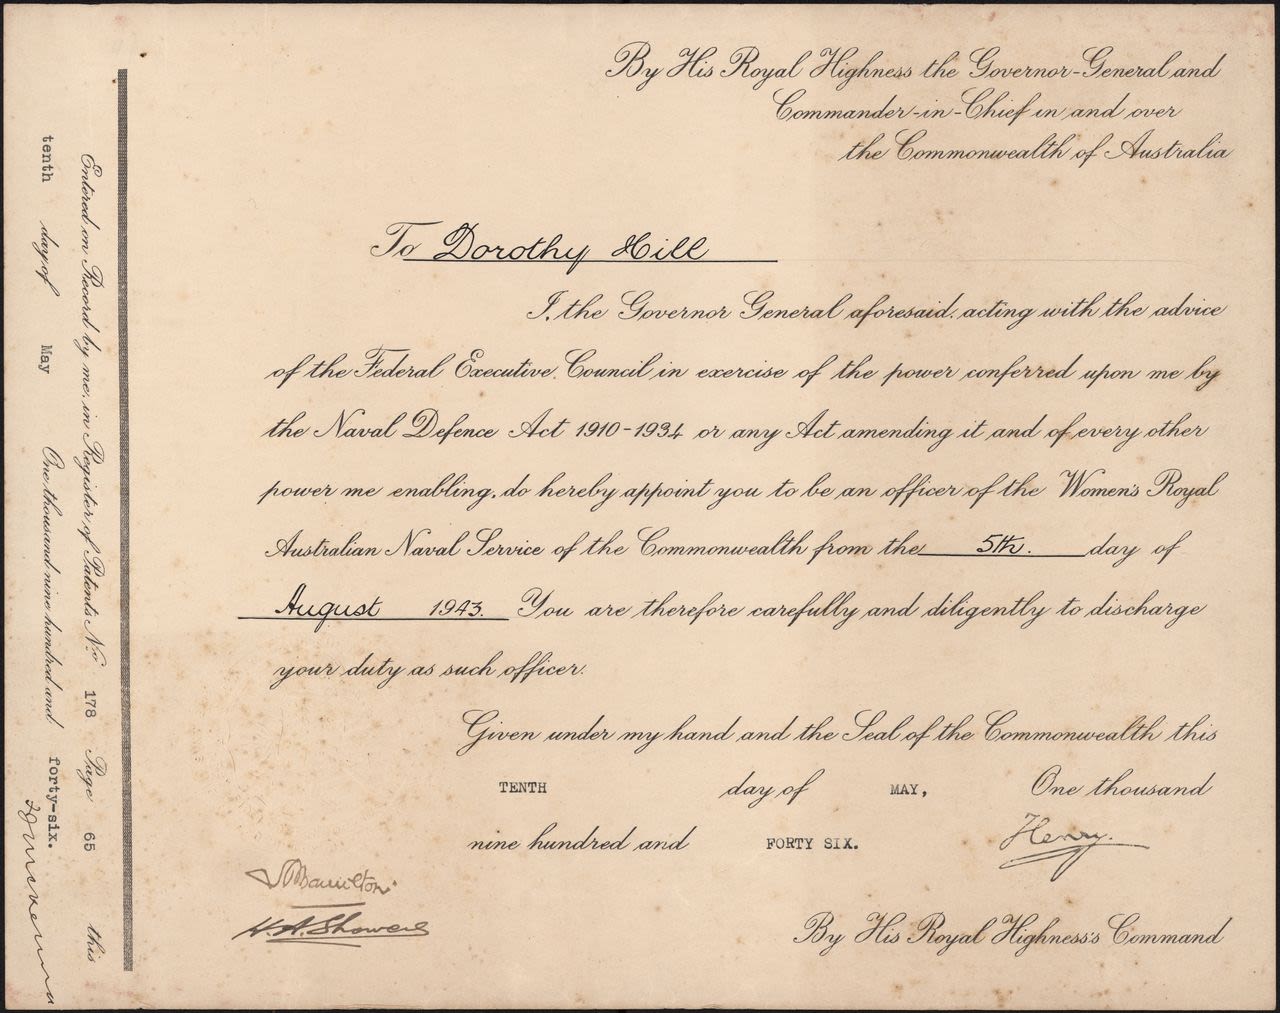 By His Royal Highness the Governor-General and
Commander-in-Chief in and over
the Commonwealth of Australia
To Dorothy Hill
I, the Governor General aforesaid, acting with the advice
of the Federal Executive Council in exercise of the power conferred upon me by
the Naval Defence Act 1910-1934 or any Act amending it and of every other
power me enabling, do hereby appoint you to be an officer of the Women's Royal
Australian Naval Service of the Commonwealth from the 5th. day of
August 1943. You are therefore carefully and diligently to discharge
your duty as such officer.
Given under my hand and the Seal of the Commonwealth this
TENTH day of MAY, One thousand
nine hundred and FORTY SIX.
Henry.
By His Royal Highness's Command
H.A. Showers
Entered on Record by me, in Register of Patents No. 178 Page 65 this
tenth day of May One thousand nine hundred and forty-six.